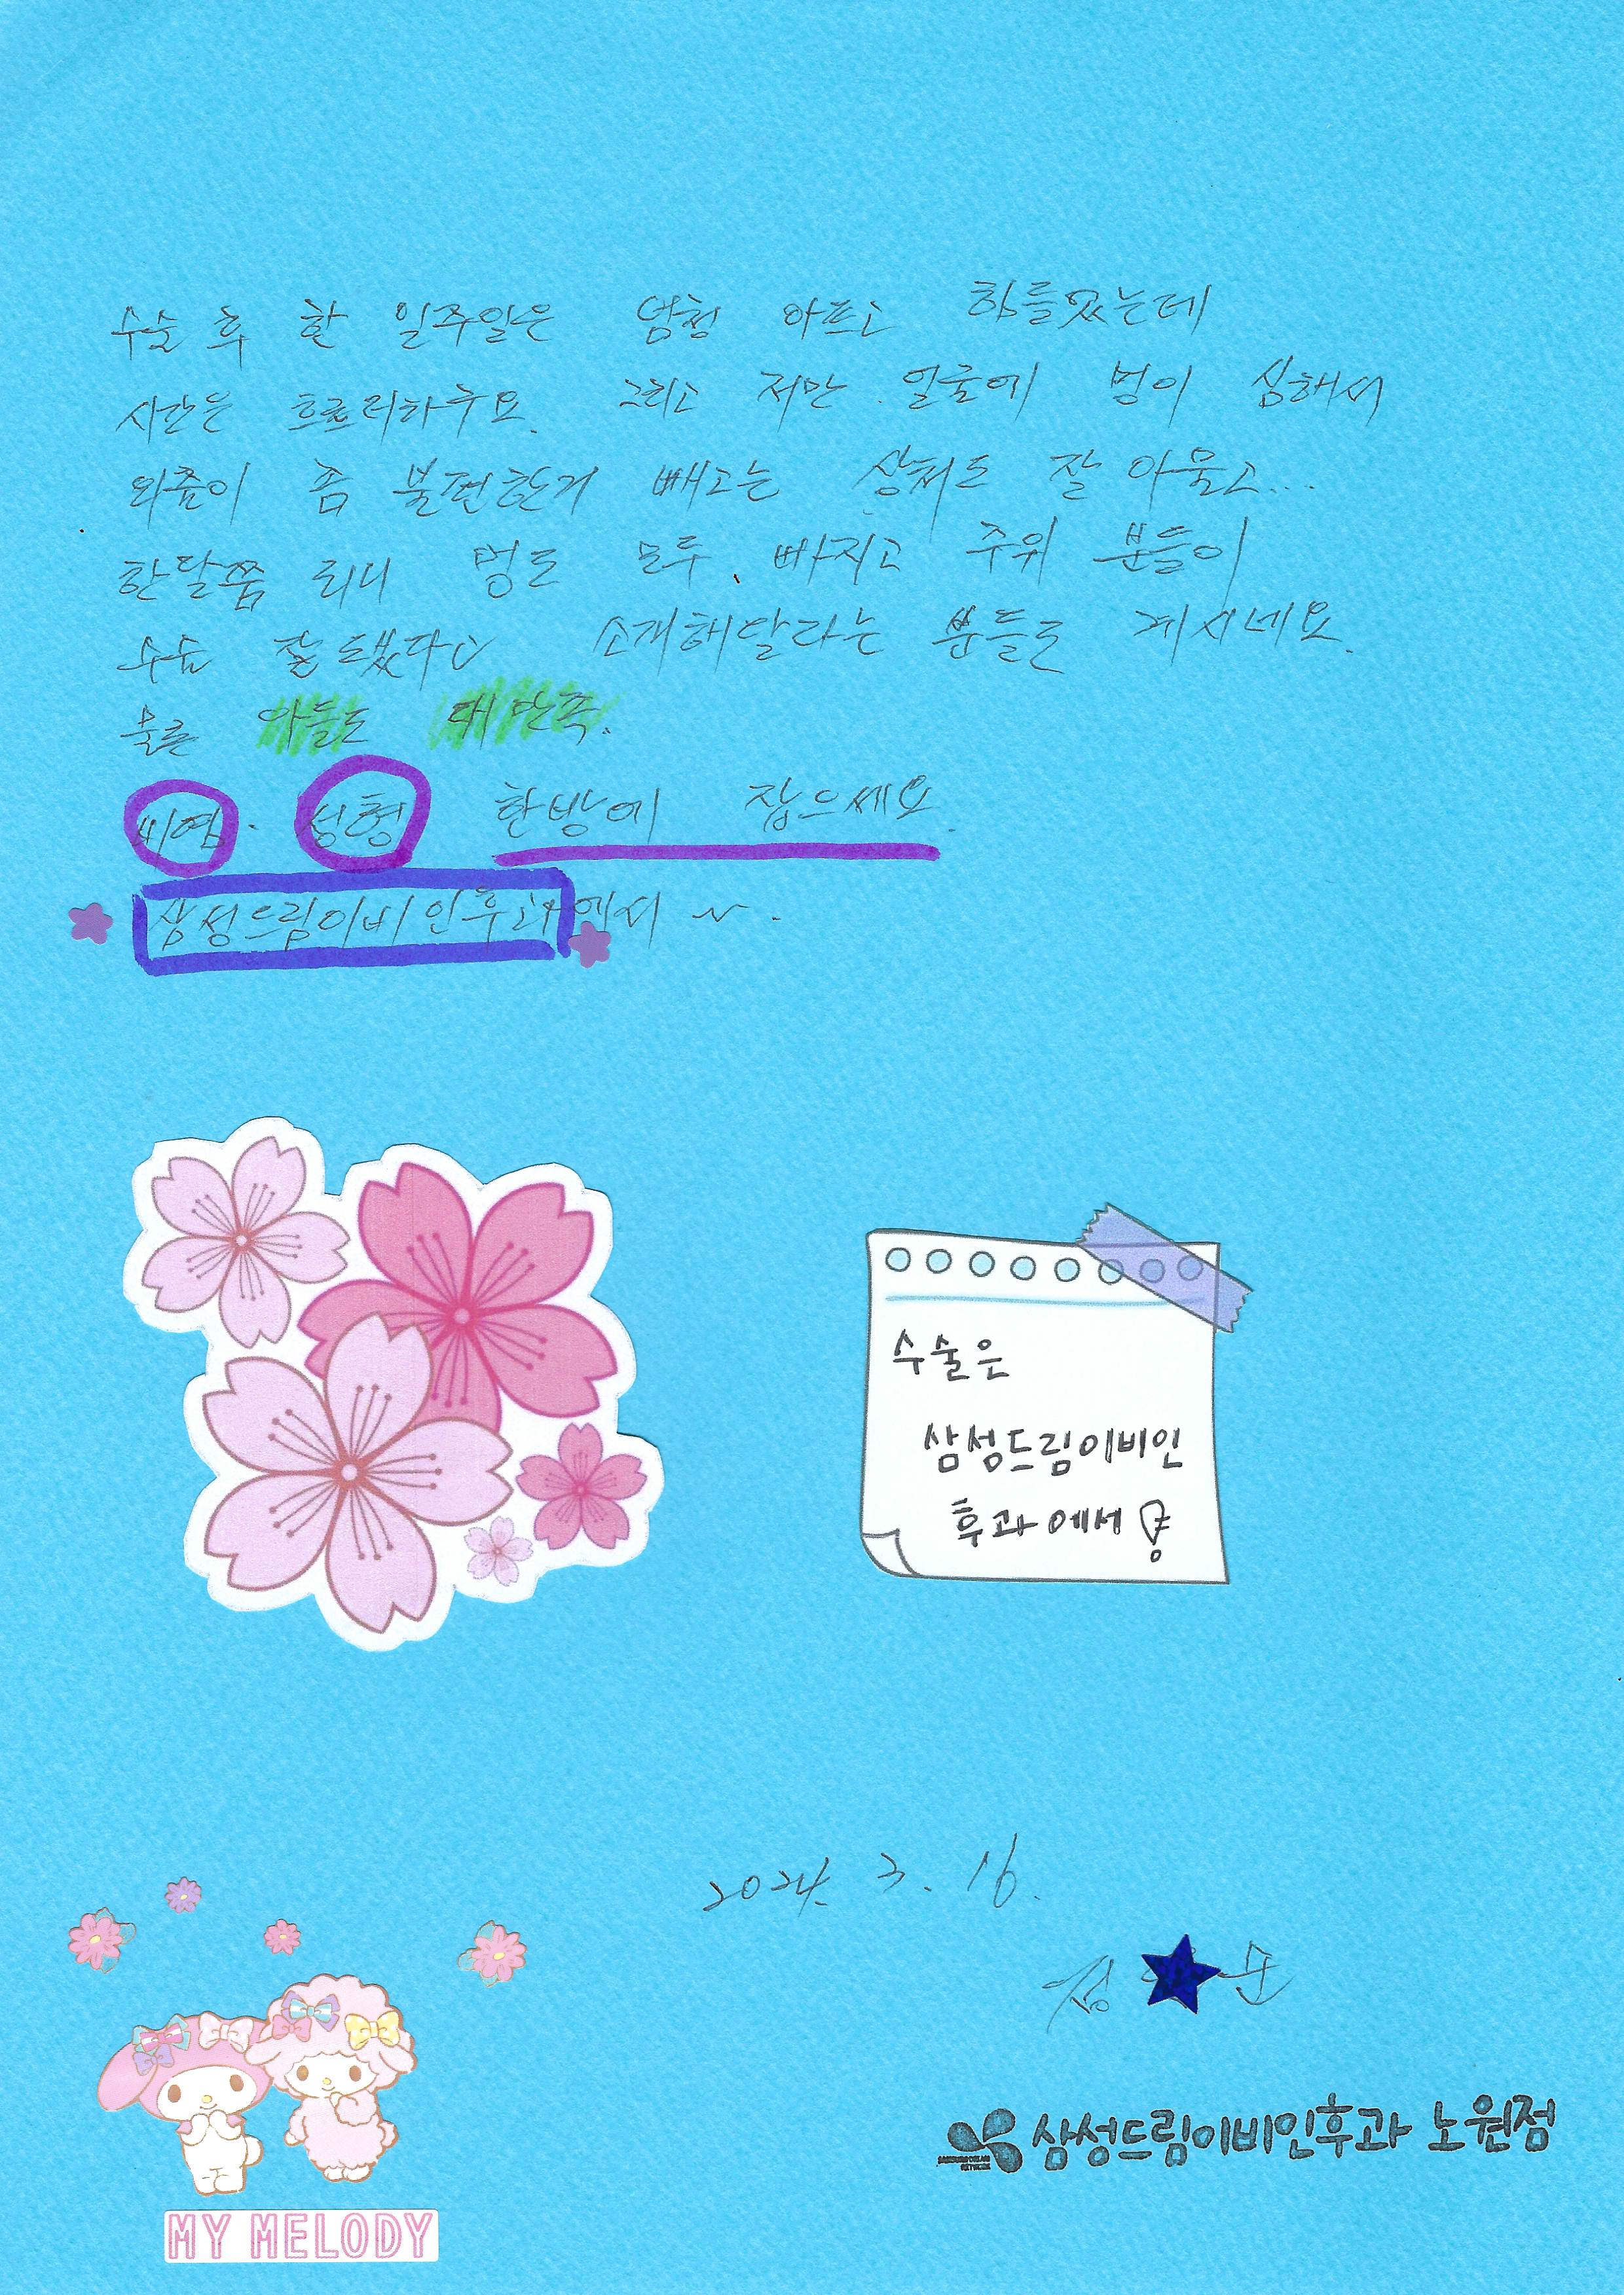 수술 후 한 일주일은 엄청 아프고 힘들었는데
시간은 흐르더라구요. 그리고 저만 얼굴에 멍이 심해서
외출이 좀 불편한거 빼고는 상처도 잘 아물고...
한달쯤 되니 멍도 모두 빠지고 주위 분들이
수술 잘 됐다고 소개해달라는 분들도 계시네요.
물론 아들도 대만족.
비염. 성형 한방에 잡으세요.
삼성드림이비인후과에서 ~.
수술은
삼성드림이비인
후과에서
2024. 3. 16.
순
삼성드림이비인후과 노원점
MY MELODY